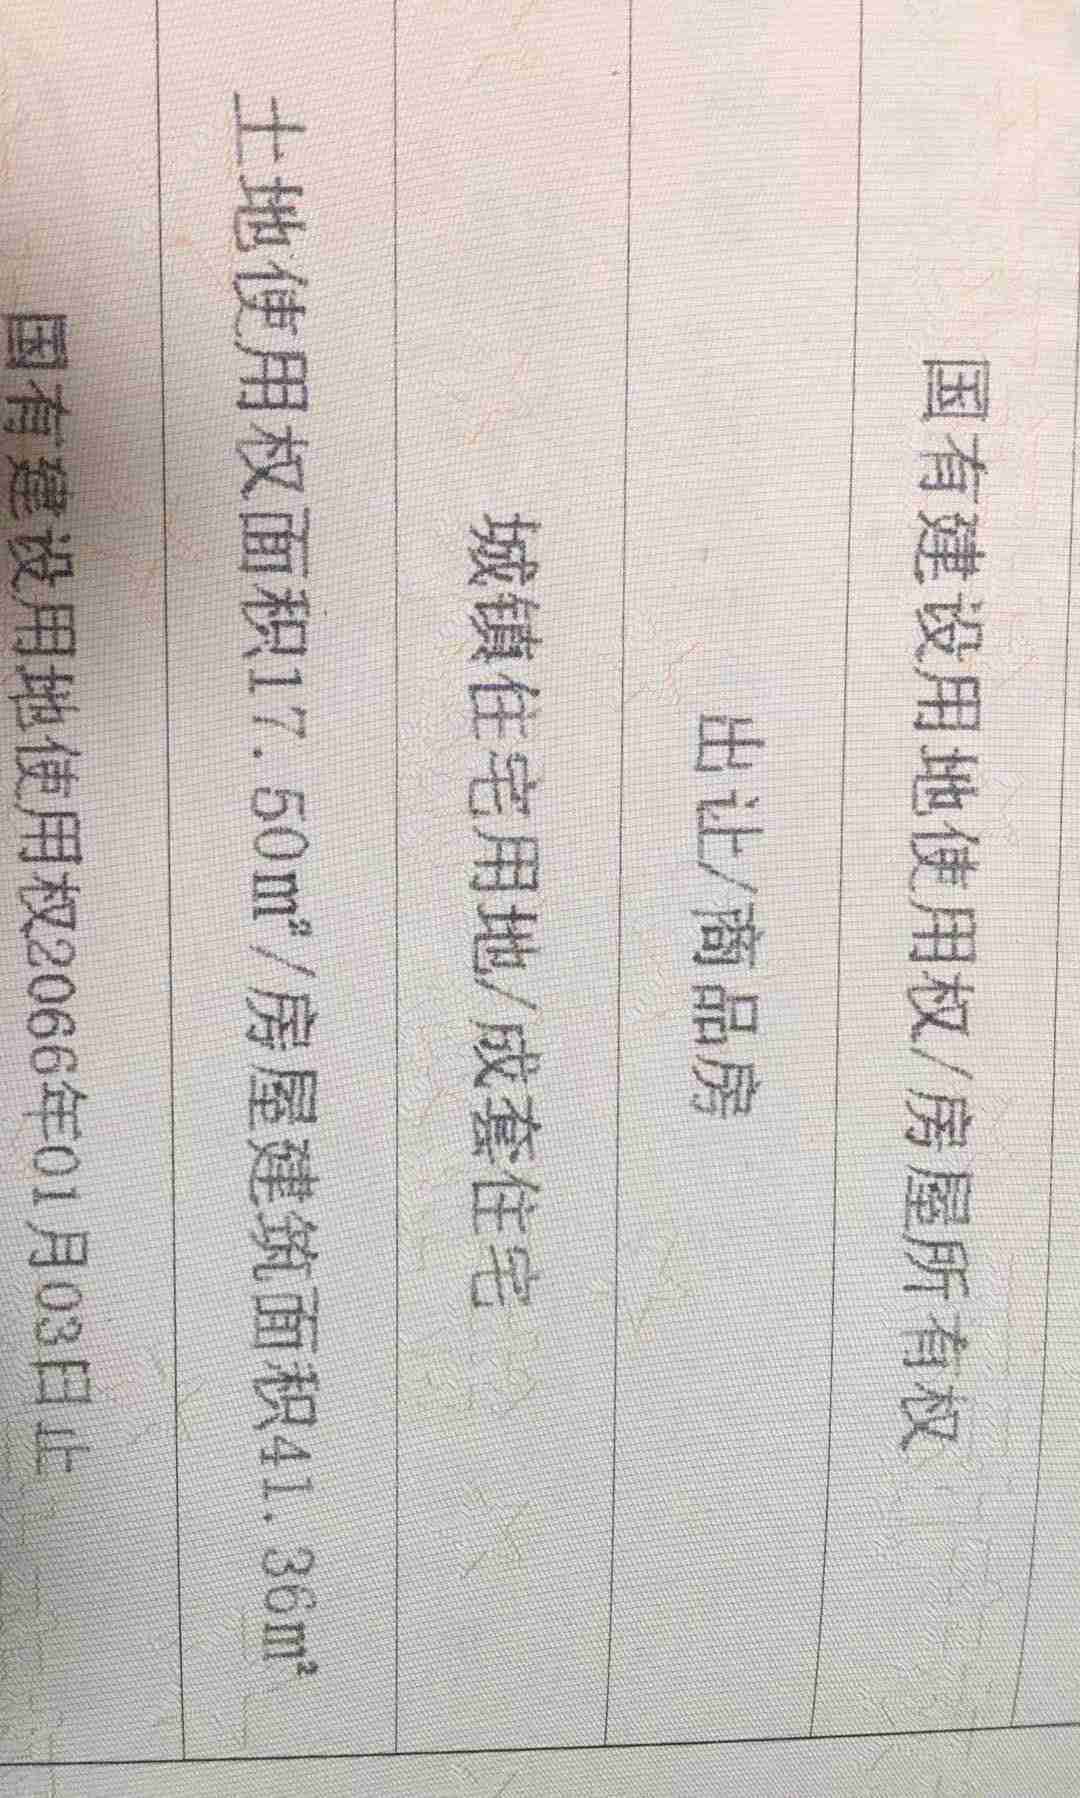 国有建设用地使用权/房屋所有权
出让/商品房
城镇住宅用地/成套住宅
土地使用权面积17.50㎡/房屋建筑面积41.36㎡
国有建设用地使用权2066年01月03日止